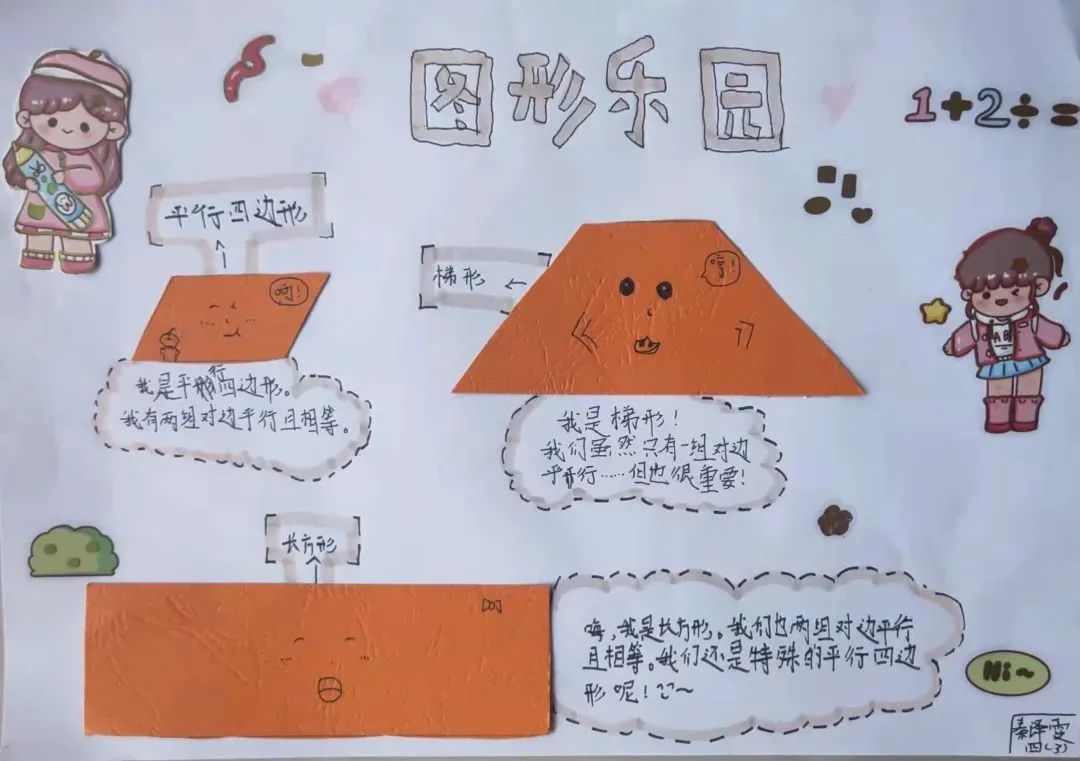 图形乐园
1+2÷=
平行四边形
呵!
我是平行四边形。
我有两组对边平行且相等。
梯形
我是梯形!
我们虽然只有一组对边
平行……但也很重要!
长方形
嗨,我是长方形。我们也两组对边平行
且相等。我们还是特殊的平行四边
形呢!~
Ni~
秦泽雯
四(3)